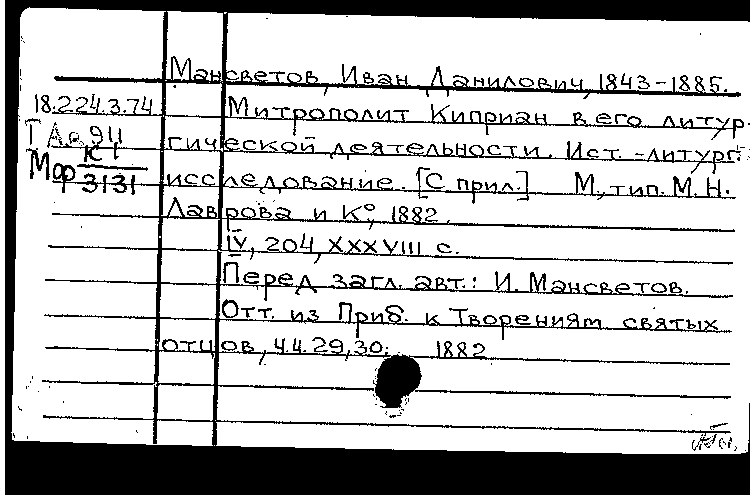 Мансветов, Иван Данилович, 1843-1885.
18.224.3.74 Митрополит Киприан в его литур-
гической деятельности. Ист.-литург.
Мф К 1
3131
исследование. [С прил.] М., тип. М. Н.
Лаврова и К°, 1882.
IV, 204, XXXVIII с.
Перед загл. авт.: И. Мансветов.
Отт. из Приб. к Творениям святых
отцов, ч.ч. 29, 30. 1882